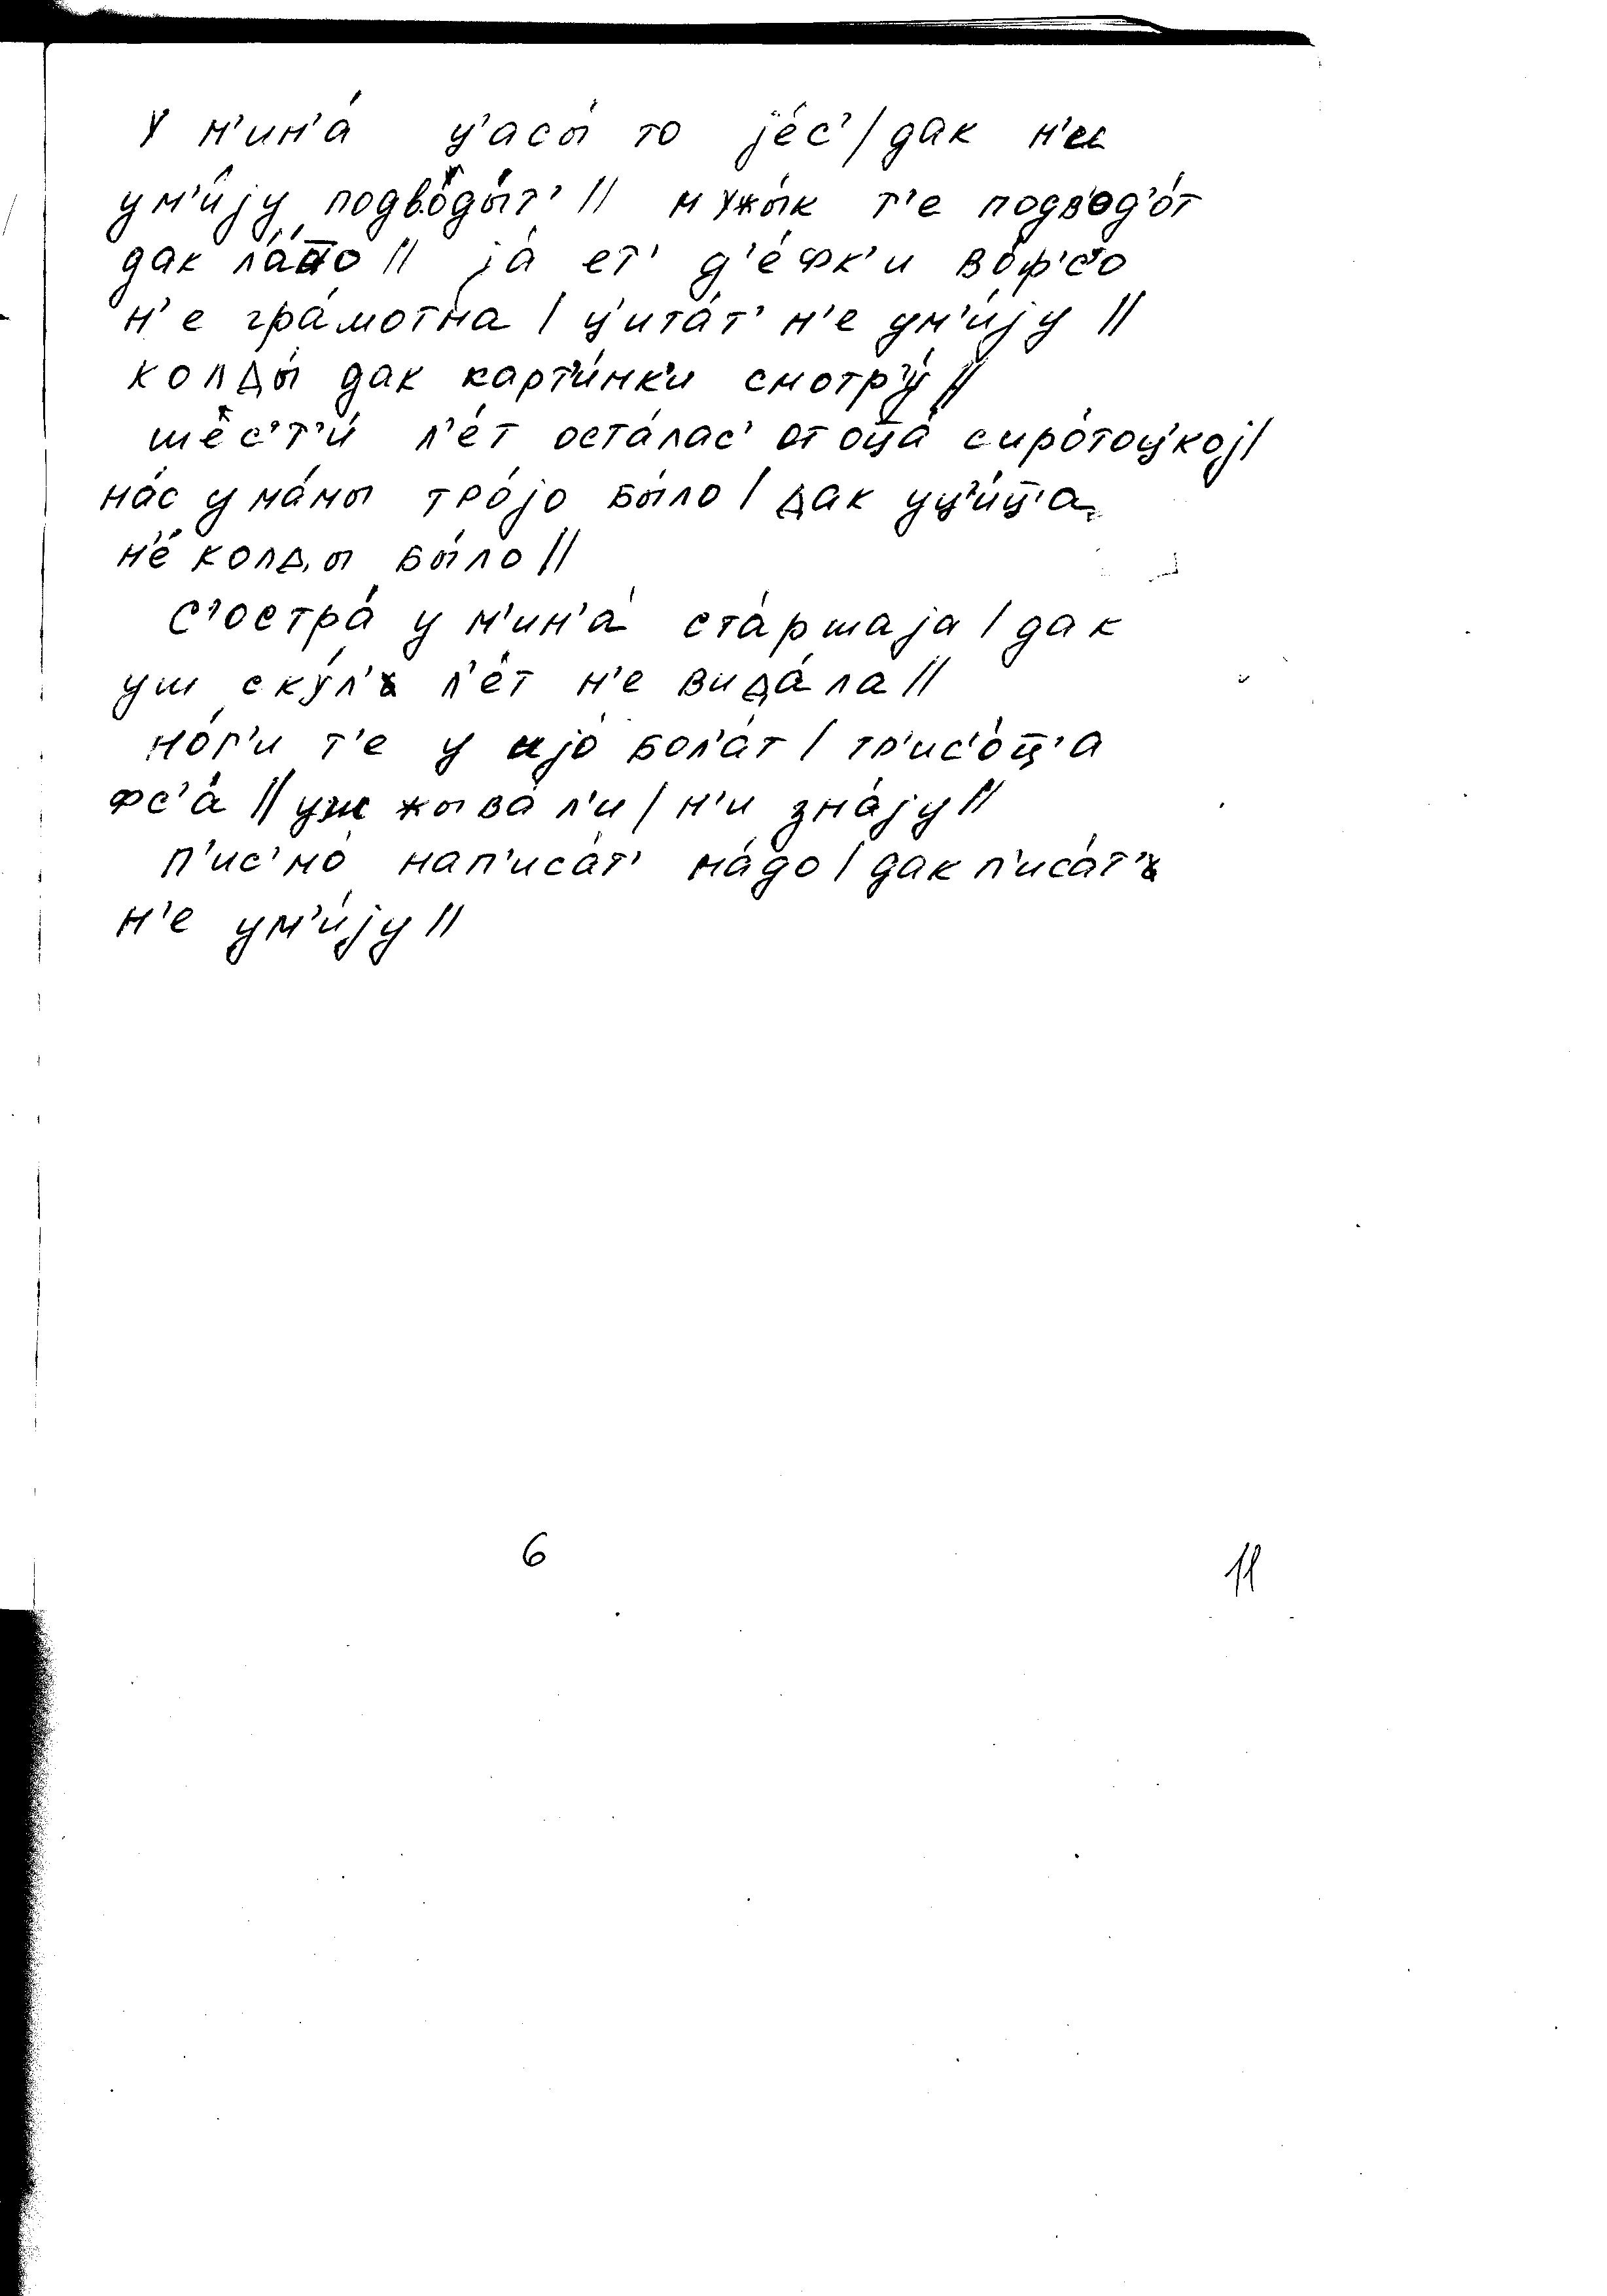 У м'ин'а́ ц'асы́ то jе́с' / дак н'е
ум'и́jу подво́ды́т' // мужы́к т'е подвод'о́т
дак ла́д̄но // jа́ ет' д'е́фк'и во́ф'со
н'е гра́мотна / ц'ита́т' н'е ум'и́jу //
колды́ дак карт'и́нк'и смотр'у́ //
ше́с'т'и́ л'е́т оста́лас' от оц̄а́ сиро́тоц'коj /
на́с у ма́мы тро́jо бы́ло / дак уц'и́ц̄'а
н'е́колды бы́ло //
с'остра́ у м'ин'а́ ста́ршаjа / дак
уш ску́л' л'е́т н'е вида́ла //
но́г'и т'е у иjо́ бол'а́т / тр'ис'о́ц̄'а
фс'а́ // уш жыва́ л'и / н'и зна́jу //
п'ис'мо́ нап'иса́т' на́до / дак п'иса́т'
н'е ум'и́jу //
6
11